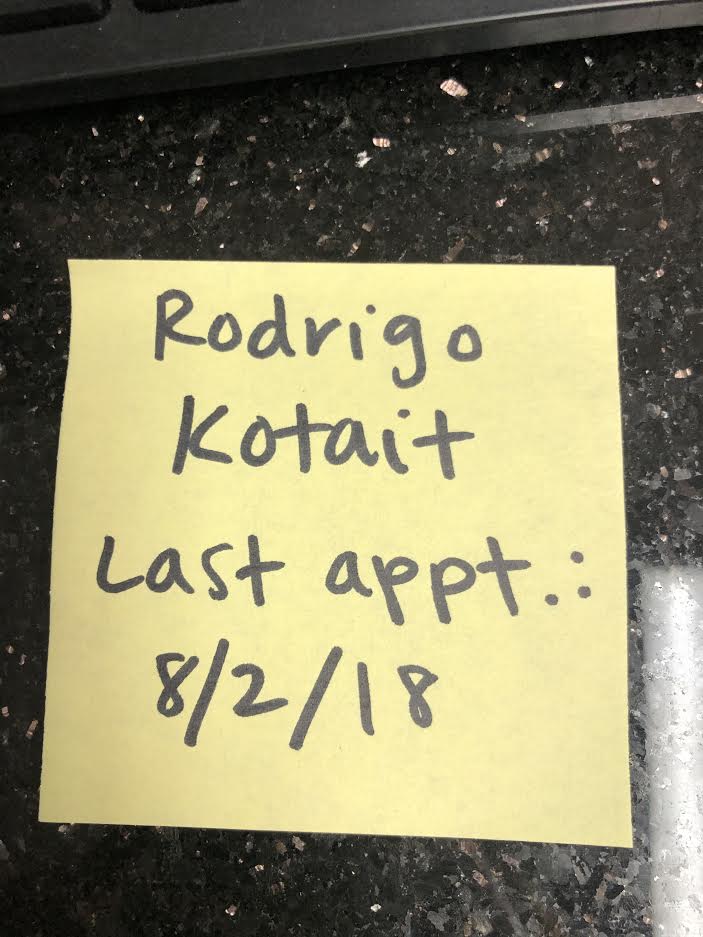 Rodrigo
Kotait
Last appt.:
8/2/18